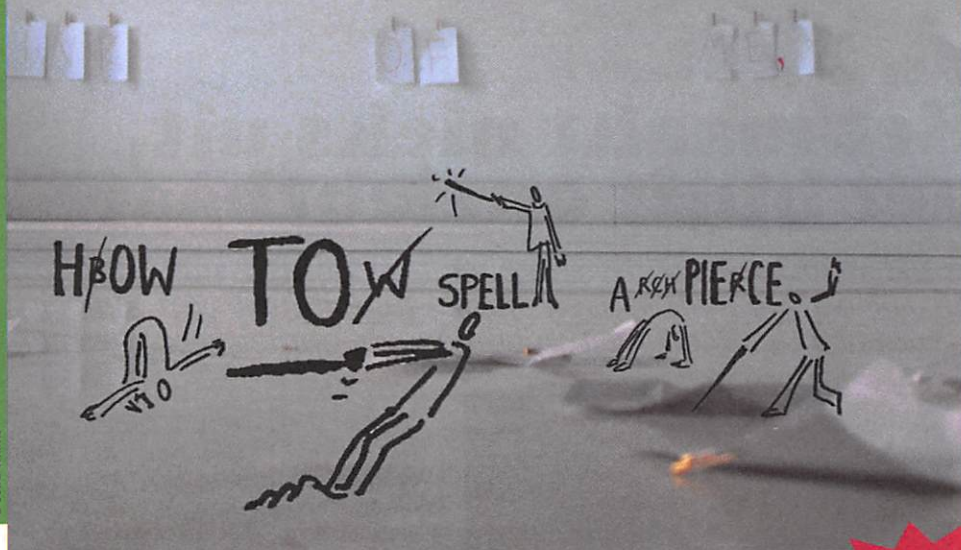 HBOW TOW SPELL ARCH PIERCE.